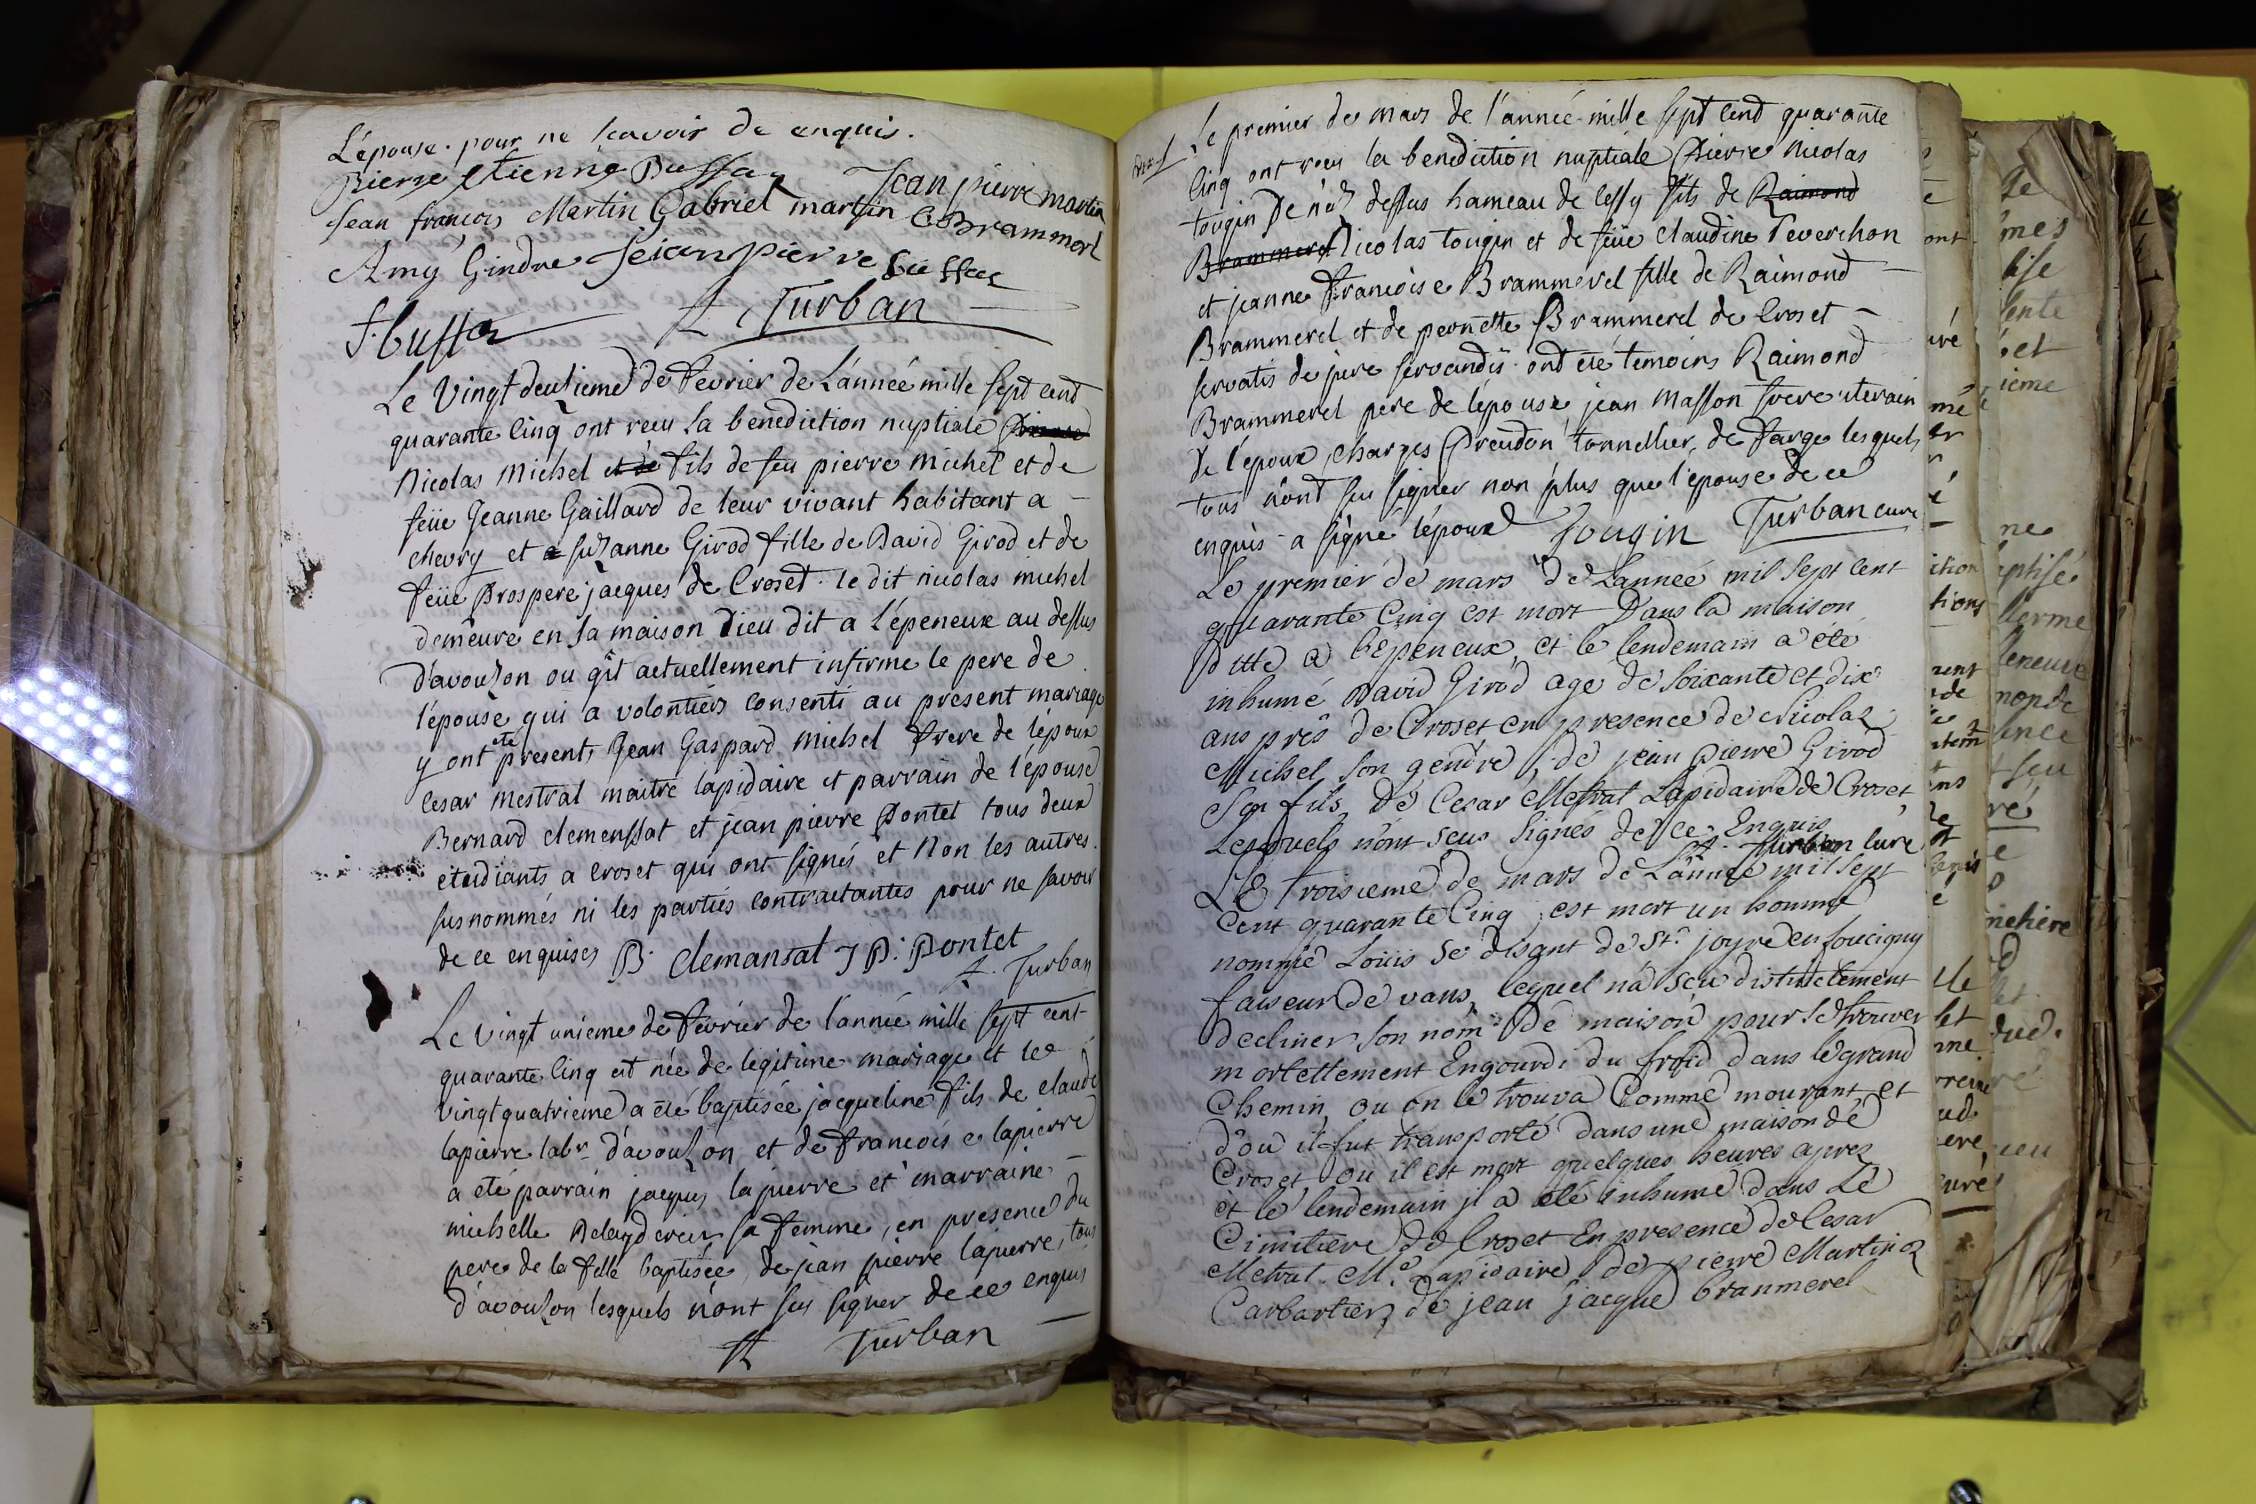 L'épouse. pour ne scavoir de enquis.
Pierre etienne Bussaz Jean pierre martin
Jean françois Martin Gabriel martin C Brammorel
Amy Gindre Jeian pierre bussas
f. bussaz St Turban
Le Vingt deuxieme de fevrier de L'année mille sept cent
quarante Cinq ont reçu la benediction nuptiale
Nicolas Michel et de fils de feu pierre Michel et de
feüe Jeanne Gaillard de leur vivant habitant a
chevry et a suzanne Girod fille de David Girod et de
feüe prospere jacques de Croset. le dit nicolas michel
demeure en sa maison Dieu dit a L'épeneux au dessus
d'avouzon ou git actuellement infirme le pere de
l'épouse qui a volontiers consenti au present mariage
y ont eté presents Jean Gaspard michel frere de l'époux
Cesar mestral maitre lapidaire et parrain de l'épouse
Bernard clemenssat et jean pierre Pontet tous deux
etudiants a croset qui ont signés et Non les autres
susnommés ni les parties contractantes pour ne savoir
de ce enquises B. Clemansat J P. Pontet
St. Turban
Le Vingt unieme de fevrier de l'année mille sept cent
quarante Cinq est née de legitime mariage et le
vingt quatrieme a eté baptisée jacqueline fils de claude
lapierre labr. d'avouzon et de francoise lapierre
a eté parrain jacques lapierre et marraine
michelle sa femme, en presence du
pere de la fille baptisée, de jean pierre lapierre, tous
d'avouzon lesquels n'ont su signer de ce enquis
St Turban
Le premier de mars de l'année mille sept Cent quarante
Cinq ont reçu la benediction nuptiale Pierre Nicolas
tougin De dessus hameau de Cessy fils de Raimond
Brammerel Nicolas tougin et de feüe claudine Peverchon
et jeanne Francoise Brammerel fille de Raimond
Brammerel et de pernette Brammerel de Croset
servatis de jure servandis ont eté temoins Raimond
Brammerel pere de l'épouse jean Masson frere uterain
de l'époux, Charges Preudon tonnellier, de farge lesquels
tous n'ont su signer non plus que l'épouse de ce
enquis a signé l'époux Tougin Turban curé
Le premier de mars de Lannee mil sept cent
quarante Cinq est mort Dans la maison
ditte a L'épeneux et le lendemain a été
inhumé David Girod age de soixante et dix
ans prês de Croset en presence de Nicolas
Michel son gendre, de jean pierre Girod
Son fils, de Cesar Metral Lapidaire de Croset
Lesquels n'ont seus Signés de ce Enquis
St. Turban Curé
LE troisieme de mars de Lannee mil sept
cent quarante Cinq est mort un homme
nommé Loüis se disant de St. joyre en foucigny
faiseur de vans, lequel n'a sçu distinctement
decliner son nom de maison pour se trouver
mortellement Engourdi du froid dans le grand
Chemin ou on le trouva Comme mourant, et
d'ou il fut transporté dans une maison de
Croset ou il est mort quelques heures apres
et le lendemain jl a été inhumé dans Le
Cimitière de Croset En presence de Cesar
Metral. Me. Lapidaire de pierre Martin
Carbartier, de jean jacque branmerel